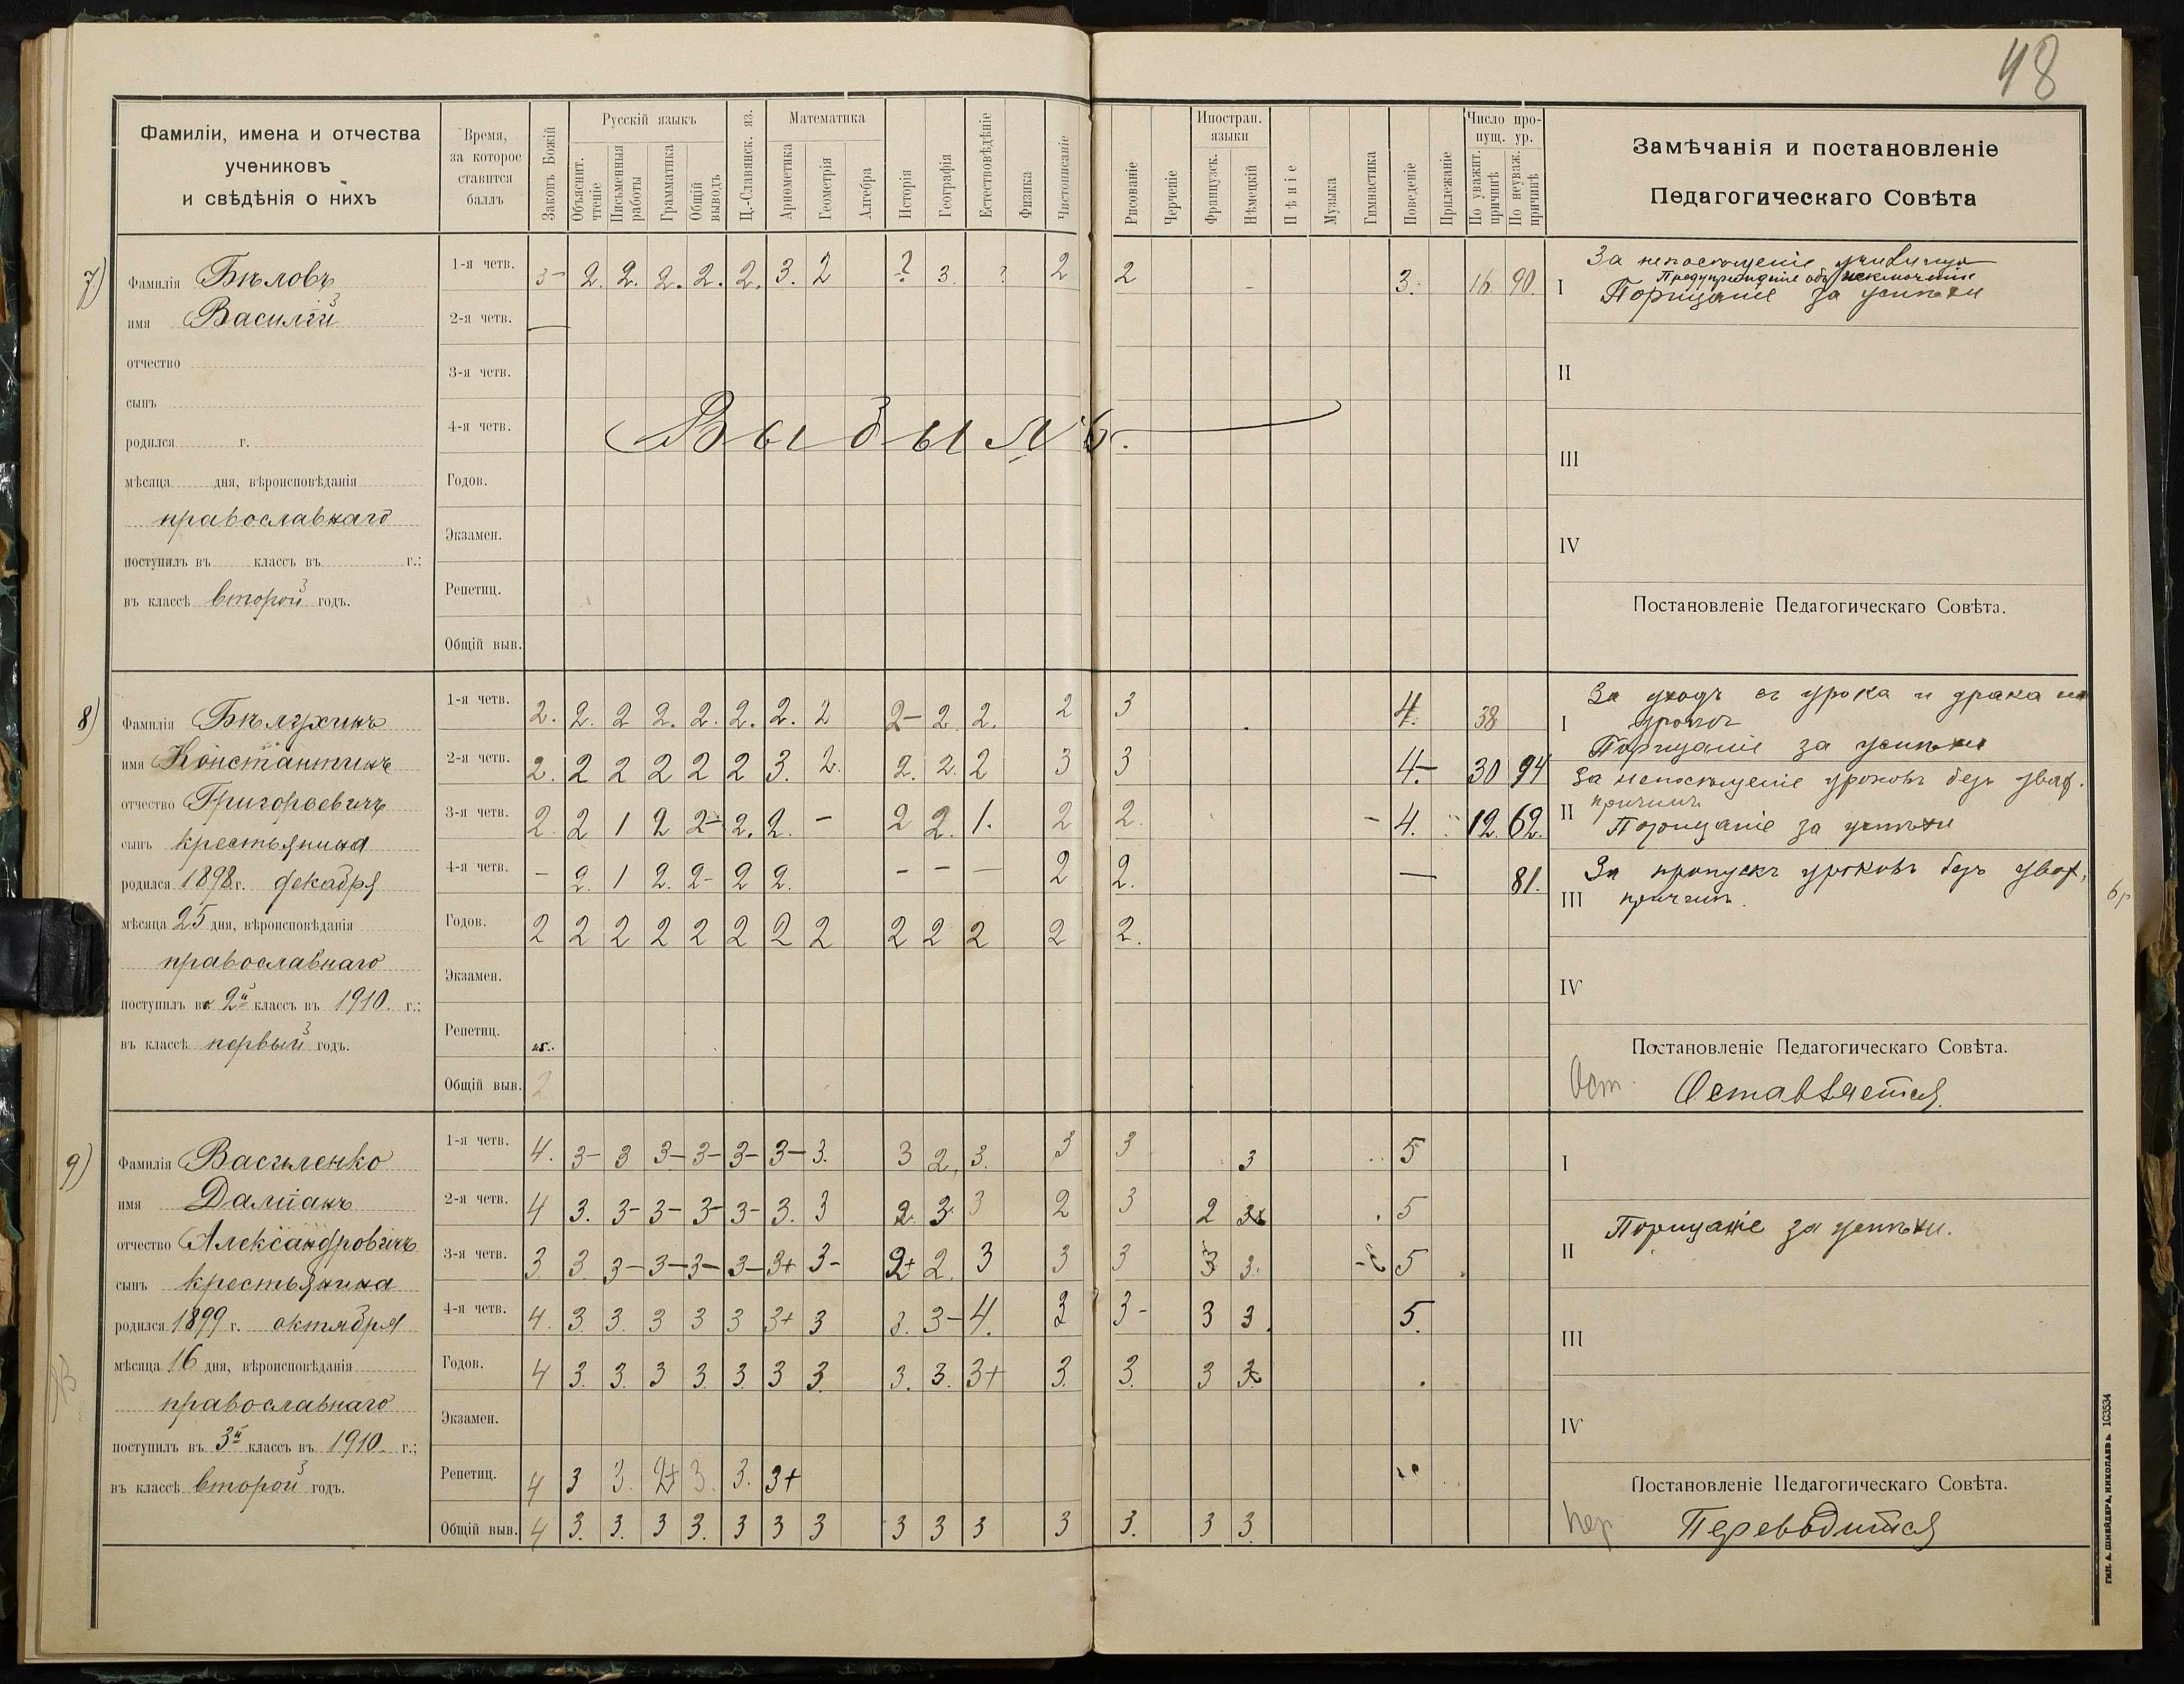 48
Фамиліи, имена и отчества
учениковъ
и свѣдѣнія о нихъ
Время,
за которое
ставится
баллъ
Законъ Божій
Русскій языкъ
Объяснит. чтеніе
Письменныя работы
Грамматика
Общій выводъ
Ц.-Славянск. яз.
Математика
Ариѳметика
Геометрія
Алгебра
Исторія
Географія
Естествовѣдѣніе
Физика
Чистописаніе
Рисованіе
Черченіе
Иностран. языки
Французск.
Нѣмецкій
Пѣніе
Музыка
Гимнастика
Поведеніе
Прилежаніе
Число пропущ. ур.
По уважит. причинѣ
По неуваж. причинѣ
Замѣчанія и постановленіе
Педагогическаго Совѣта
7)
Фамилія Бѣловъ
имя Василій
отчество
сынъ
родился г.
мѣсяца дня, вѣроисповѣданія
православнаго
поступилъ въ классъ въ г.;
въ классѣ второй годъ.
1-я четв. 3- 2. 2. 2. 2. 2. 3. 2 ? 3. ? 2 2 3. 16. 90.
2-я четв.
3-я четв.
4-я четв. Выбылъ.
Годов.
Экзамен.
Репетиц.
Общій выв.
I За непосѣщеніе училища
Предупрежденіе объ исключеніи
Порицаніе за успѣхи
II
III
IV
Постановленіе Педагогическаго Совѣта.
8)
Фамилія Бѣлухинъ
имя Константинъ
отчество Григорьевичъ
сынъ крестьянина
родился 1898 г. декабря
мѣсяца 25 дня, вѣроисповѣданія
православнаго
поступилъ во 2й классъ въ 1910. г.;
въ классѣ первый годъ.
1-я четв. 2. 2. 2 2. 2. 2. 2. 2 2- 2 2. 2 3 4. 38
2-я четв. 2. 2 2 2 2 2 3. 2. 2. 2. 2 3 3 4.- 30 94
3-я четв. 2. 2 1 2 2- 2. 2. - 2 2. 1. 2 2. - 4. 12. 62.
4-я четв. - 2. 1 2. 2- 2 2. - - - 2 2. - 81.
Годов. 2 2 2 2 2 2 2 2 2 2 2 2 2.
Экзамен.
Репетиц.
Общій выв. 2
I За уходъ съ урока и драка на
урокѣ
Порицаніе за успѣхи
II За непосѣщеніе уроковъ безъ уваж.
причинъ
Порицаніе за успѣхи
III За пропускъ уроковъ безъ уваж.
причинъ.
IV
Постановленіе Педагогическаго Совѣта.
Ост. Оставляется
9)
Фамилія Василенко
имя Даміанъ
отчество Александровичъ
сынъ крестьянина
родился 1899 г. октября
мѣсяца 16 дня, вѣроисповѣданія
православнаго
поступилъ въ 3й классъ въ 1910. г.;
въ классѣ второй годъ.
1-я четв. 4. 3- 3 3- 3- 3- 3- 3. 3 2. 3. 3 3 3 5
2-я четв. 4 3. 3- 3- 3- 3- 3. 3 2. 3. 3 2 3 2 3 5
3-я четв. 3 3 3- 3- 3- 3- 3+ 3- 2+ 2. 3 3 3 3 3. 5
4-я четв. 4. 3. 3. 3 3 3 3+ 3 3. 3- 4. 3 3- 3 3 5.
Годов. 4 3. 3. 3 3. 3. 3 3. 3. 3. 3+ 3. 3. 3 3
Экзамен.
Репетиц. 4 3 3. 2+ 3. 3. 3+
Общій выв. 4 3. 3. 3 3. 3 3 3 3 3 3 3 3. 3 3.
I
II Порицаніе за успѣхи.
III
IV
Постановленіе Педагогическаго Совѣта.
Пер Переводится
ТИП. А. ШНЕЙДЕРА, НИКОЛАЕВЪ 103534